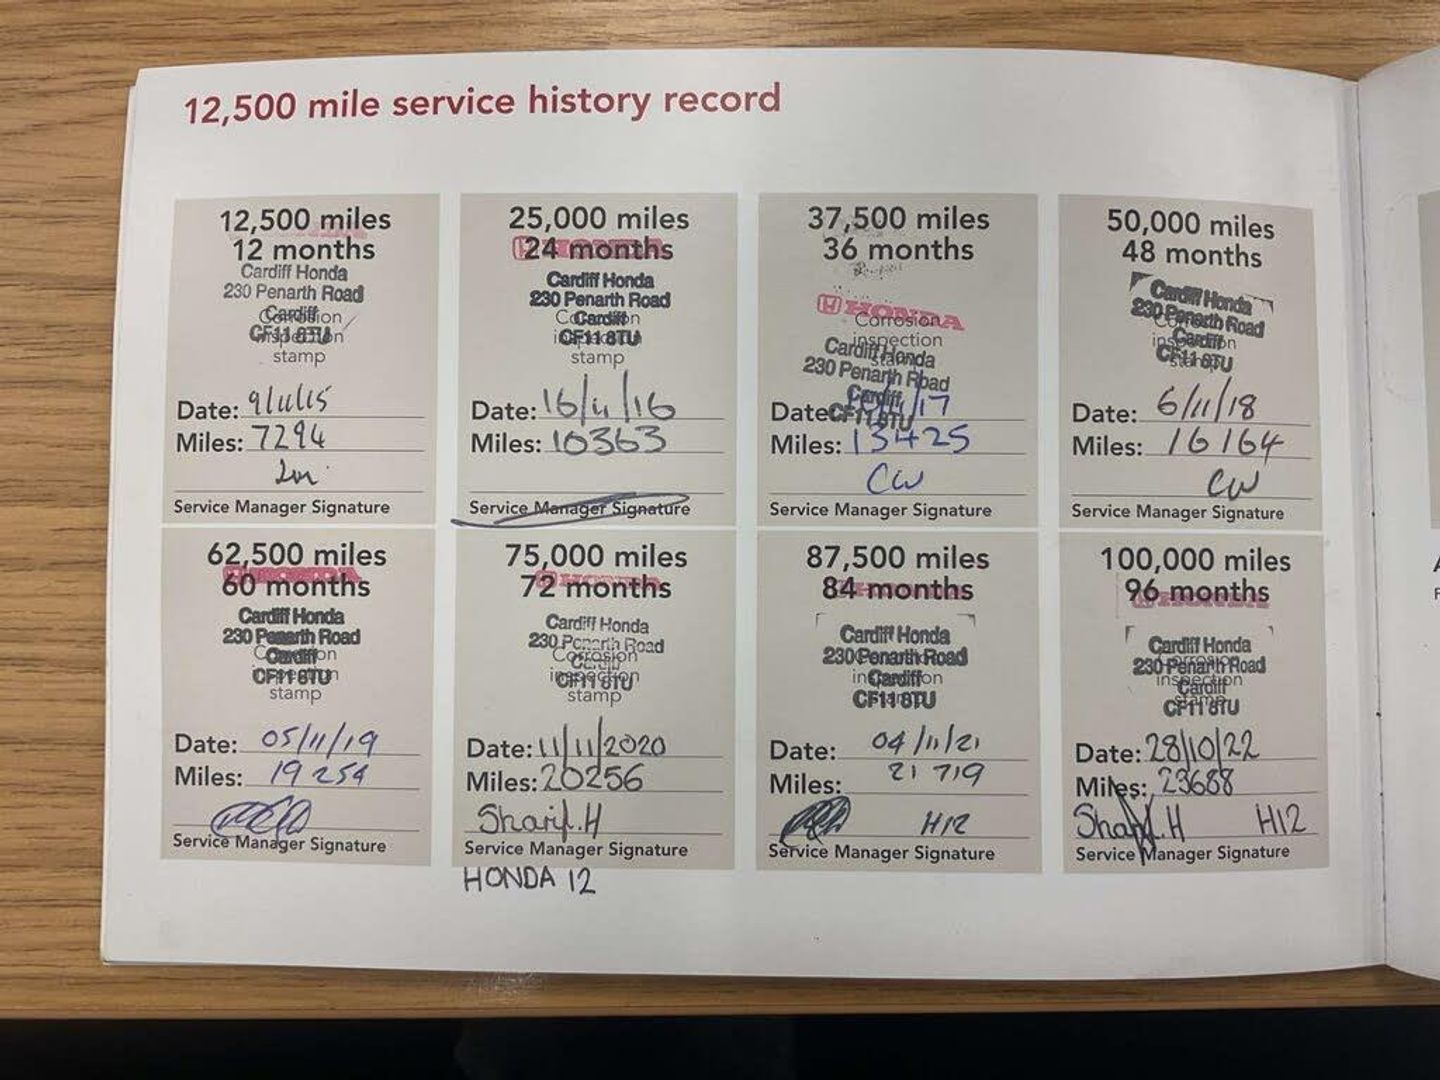 12,500 mile service history record
12,500 miles
12 months
Cardiff Honda
230 Penarth Road
Cardiff
Corrosion
CF11 8TU
inspection
stamp
Date: 9/11/15
Miles: 7294
Service Manager Signature
25,000 miles
HONDA
24 months
Cardiff Honda
230 Penarth Road
Cardiff
Corrosion
CF11 8TU
inspection
stamp
Date: 16/11/16
Miles: 10363
Service Manager Signature
37,500 miles
36 months
HONDA
Corrosion
inspection
stamp
Cardiff Honda
230 Penarth Road
Cardiff
CF11 8TU
Date: /11/17
Miles: 13425
CW
Service Manager Signature
50,000 miles
48 months
Cardiff Honda
230 Penarth Road
Corrosion
Cardiff
inspection
CF11 8TU
stamp
Date: 6/11/18
Miles: 16164
CW
Service Manager Signature
62,500 miles
60 months
Cardiff Honda
230 Penarth Road
Corrosion
Cardiff
inspection
CF11 8TU
stamp
Date: 05/11/19
Miles: 19254
Service Manager Signature
75,000 miles
HONDA
72 months
Cardiff Honda
230 Penarth Road
Corrosion
Cardiff
inspection
CF11 8TU
stamp
Date: 11/11/2020
Miles: 20256
Sharif.H
Service Manager Signature
HONDA 12
87,500 miles
84 months
HONDA
Cardiff Honda
230 Penarth Road
Cardiff
inspection
CF11 8TU
Date: 04/11/21
Miles: 21 719
H12
Service Manager Signature
100,000 miles
96 months
HONDA
Cardiff Honda
230 Penarth Road
Corrosion
inspection
Cardiff
stamp
CF11 8TU
Date: 28/10/22
Miles: 23688
Sharif.H H12
Service Manager Signature